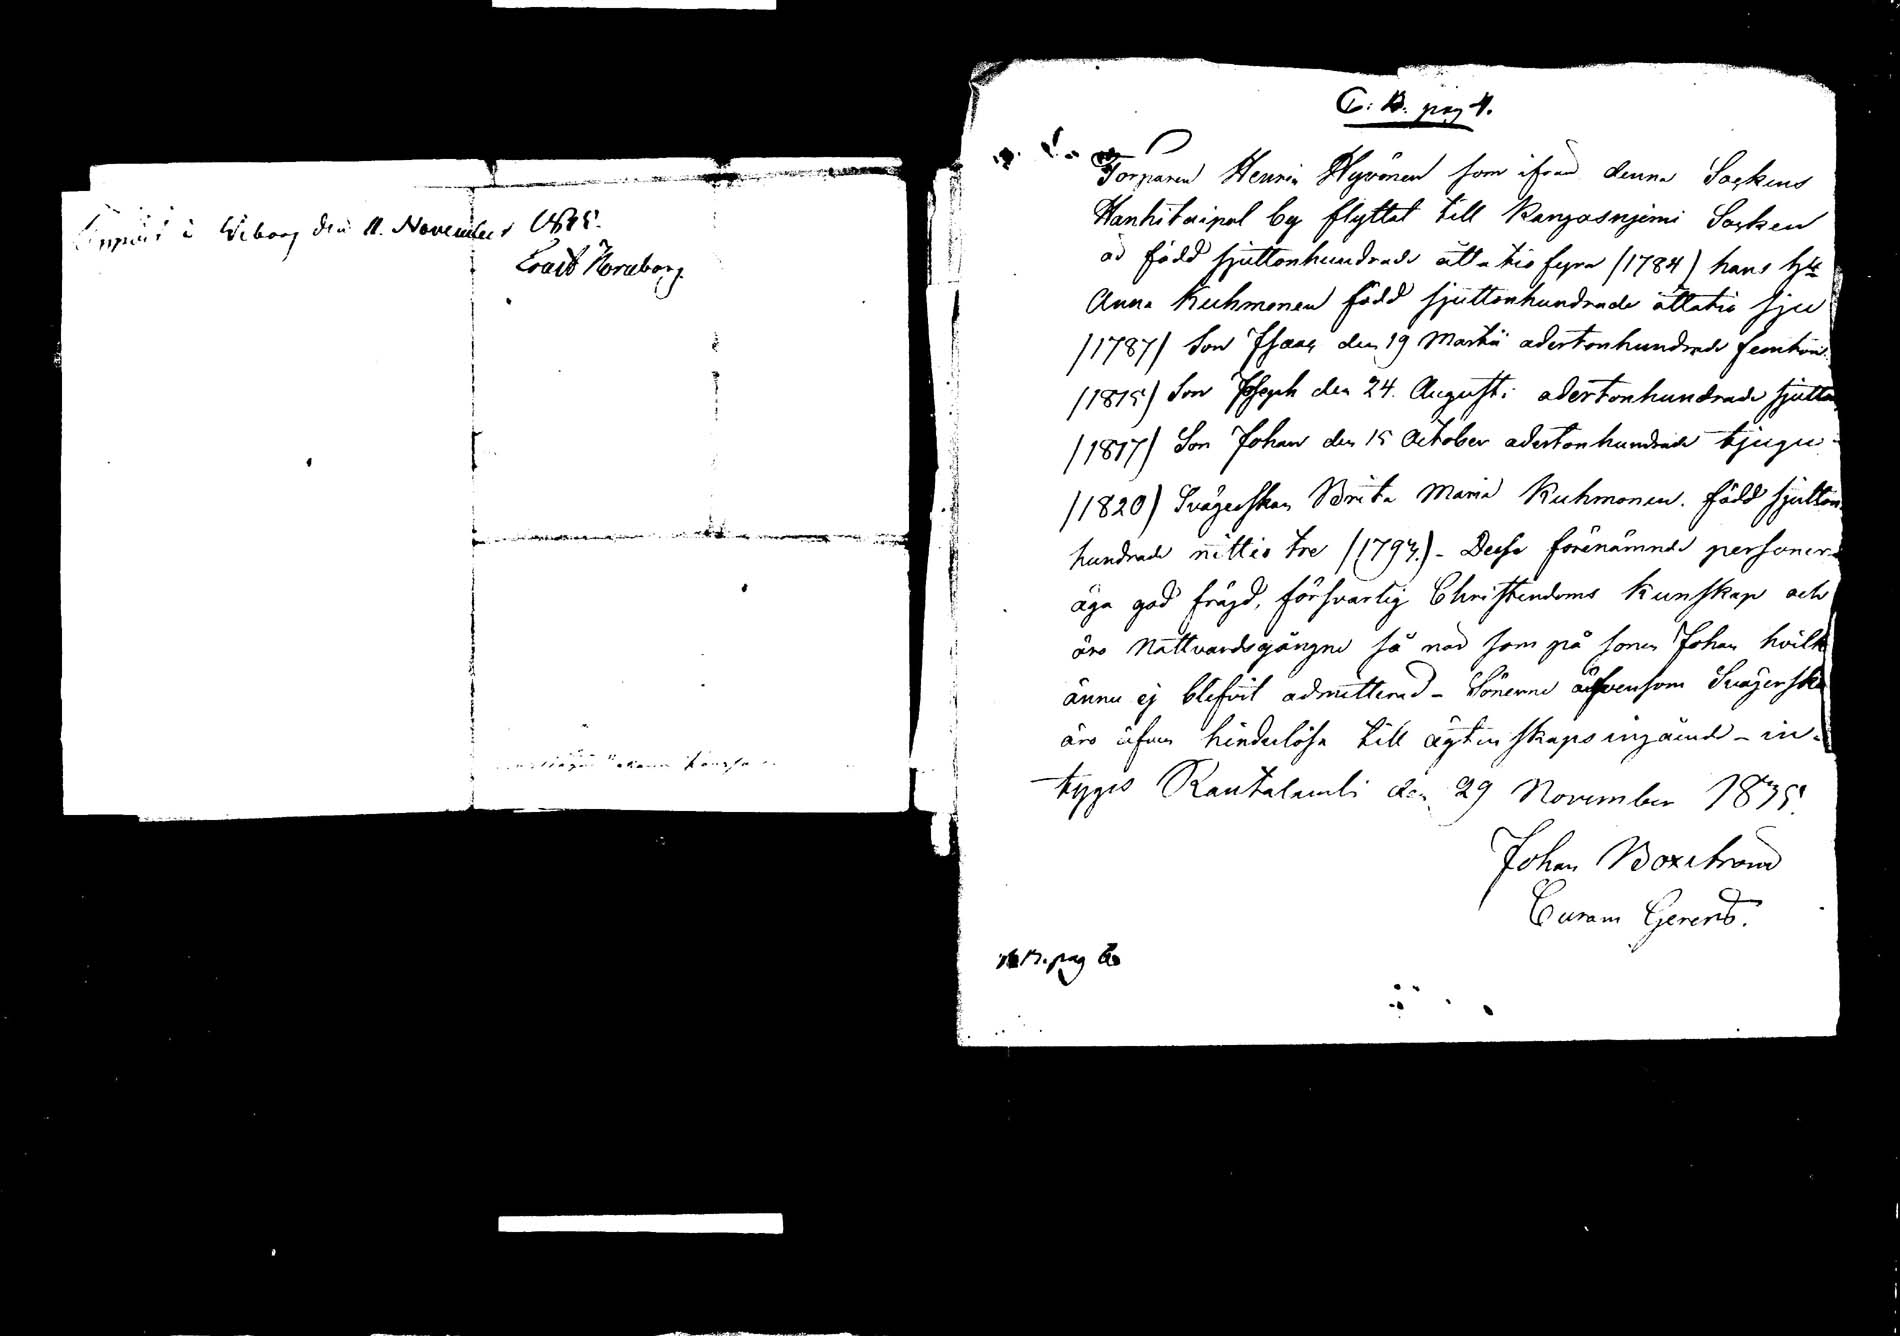 i Wiborg den 11. November 1835.
Ernst Homborg
C. B. pag 4.
Torparen Henric Hyvönen som ifrån denna Sockens
Hankitaipal by flyttat till Kangasnjemi Socken
är född sjuttonhundrade åttatio fyra (1784) hans h:u
Anna Kuhmonen född sjuttonhundrade åttatio sju
(1787) Son Isaac den 19 Martii adertonhundrade femton
(1815) Son Joseph den 24. Augusti adertonhundrade sjutton
(1817) Son Johan den 15 October adertonhundrade tjugu
(1820) Svägerskan Brita Maria Kuhmonen. född sjutton
hundrade nittio tre (1793.) - Desse förenämnde personer
äga god frägd, försvarlig Christendoms kunskap och
äro Nattvardsgångne så när som på sonen Johan hvilk
ännu ej blifvit admitterad - Sönerne äfvensom Svägerska
äro äfven hinderlösa till ägtenskaps ingående - in-
tygas Rautalambi den 29 November 1835.
Johan Boxström
Curam Gerens.
pag